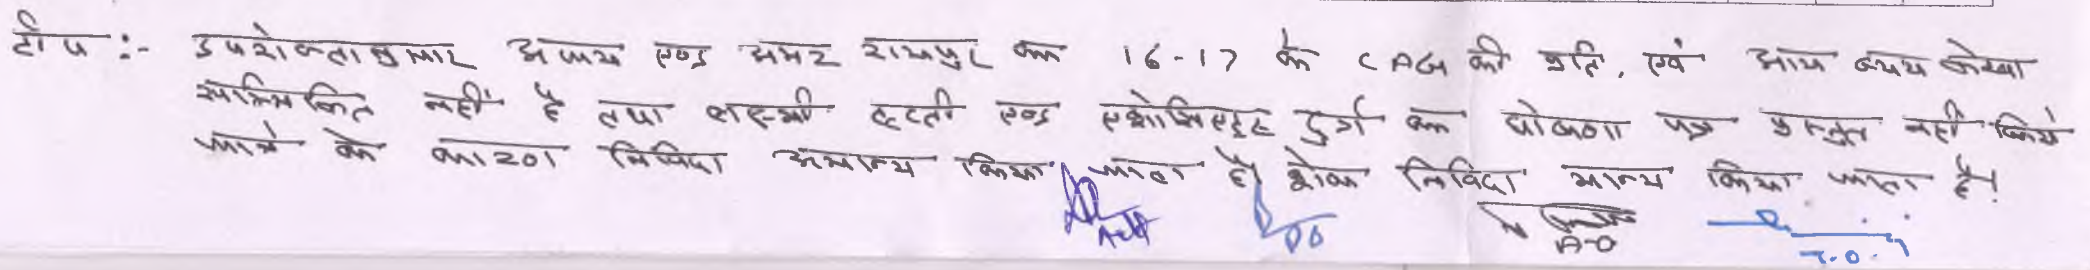 टीप :- उपरोक्तानुसार अजय एण्ड अमर रायपुर का 16-17 के CAG की प्रति, एवं आय व्यय लेखा
सत्यापित नहीं है तथा लक्ष्मी एण्ड एसोसिएट दुर्ग का घोषणा पत्र प्रस्तुत नहीं किये
जाने के कारण निविदा अमान्य किया जाता है। शेष निविदा मान्य किया जाता है।
A-O